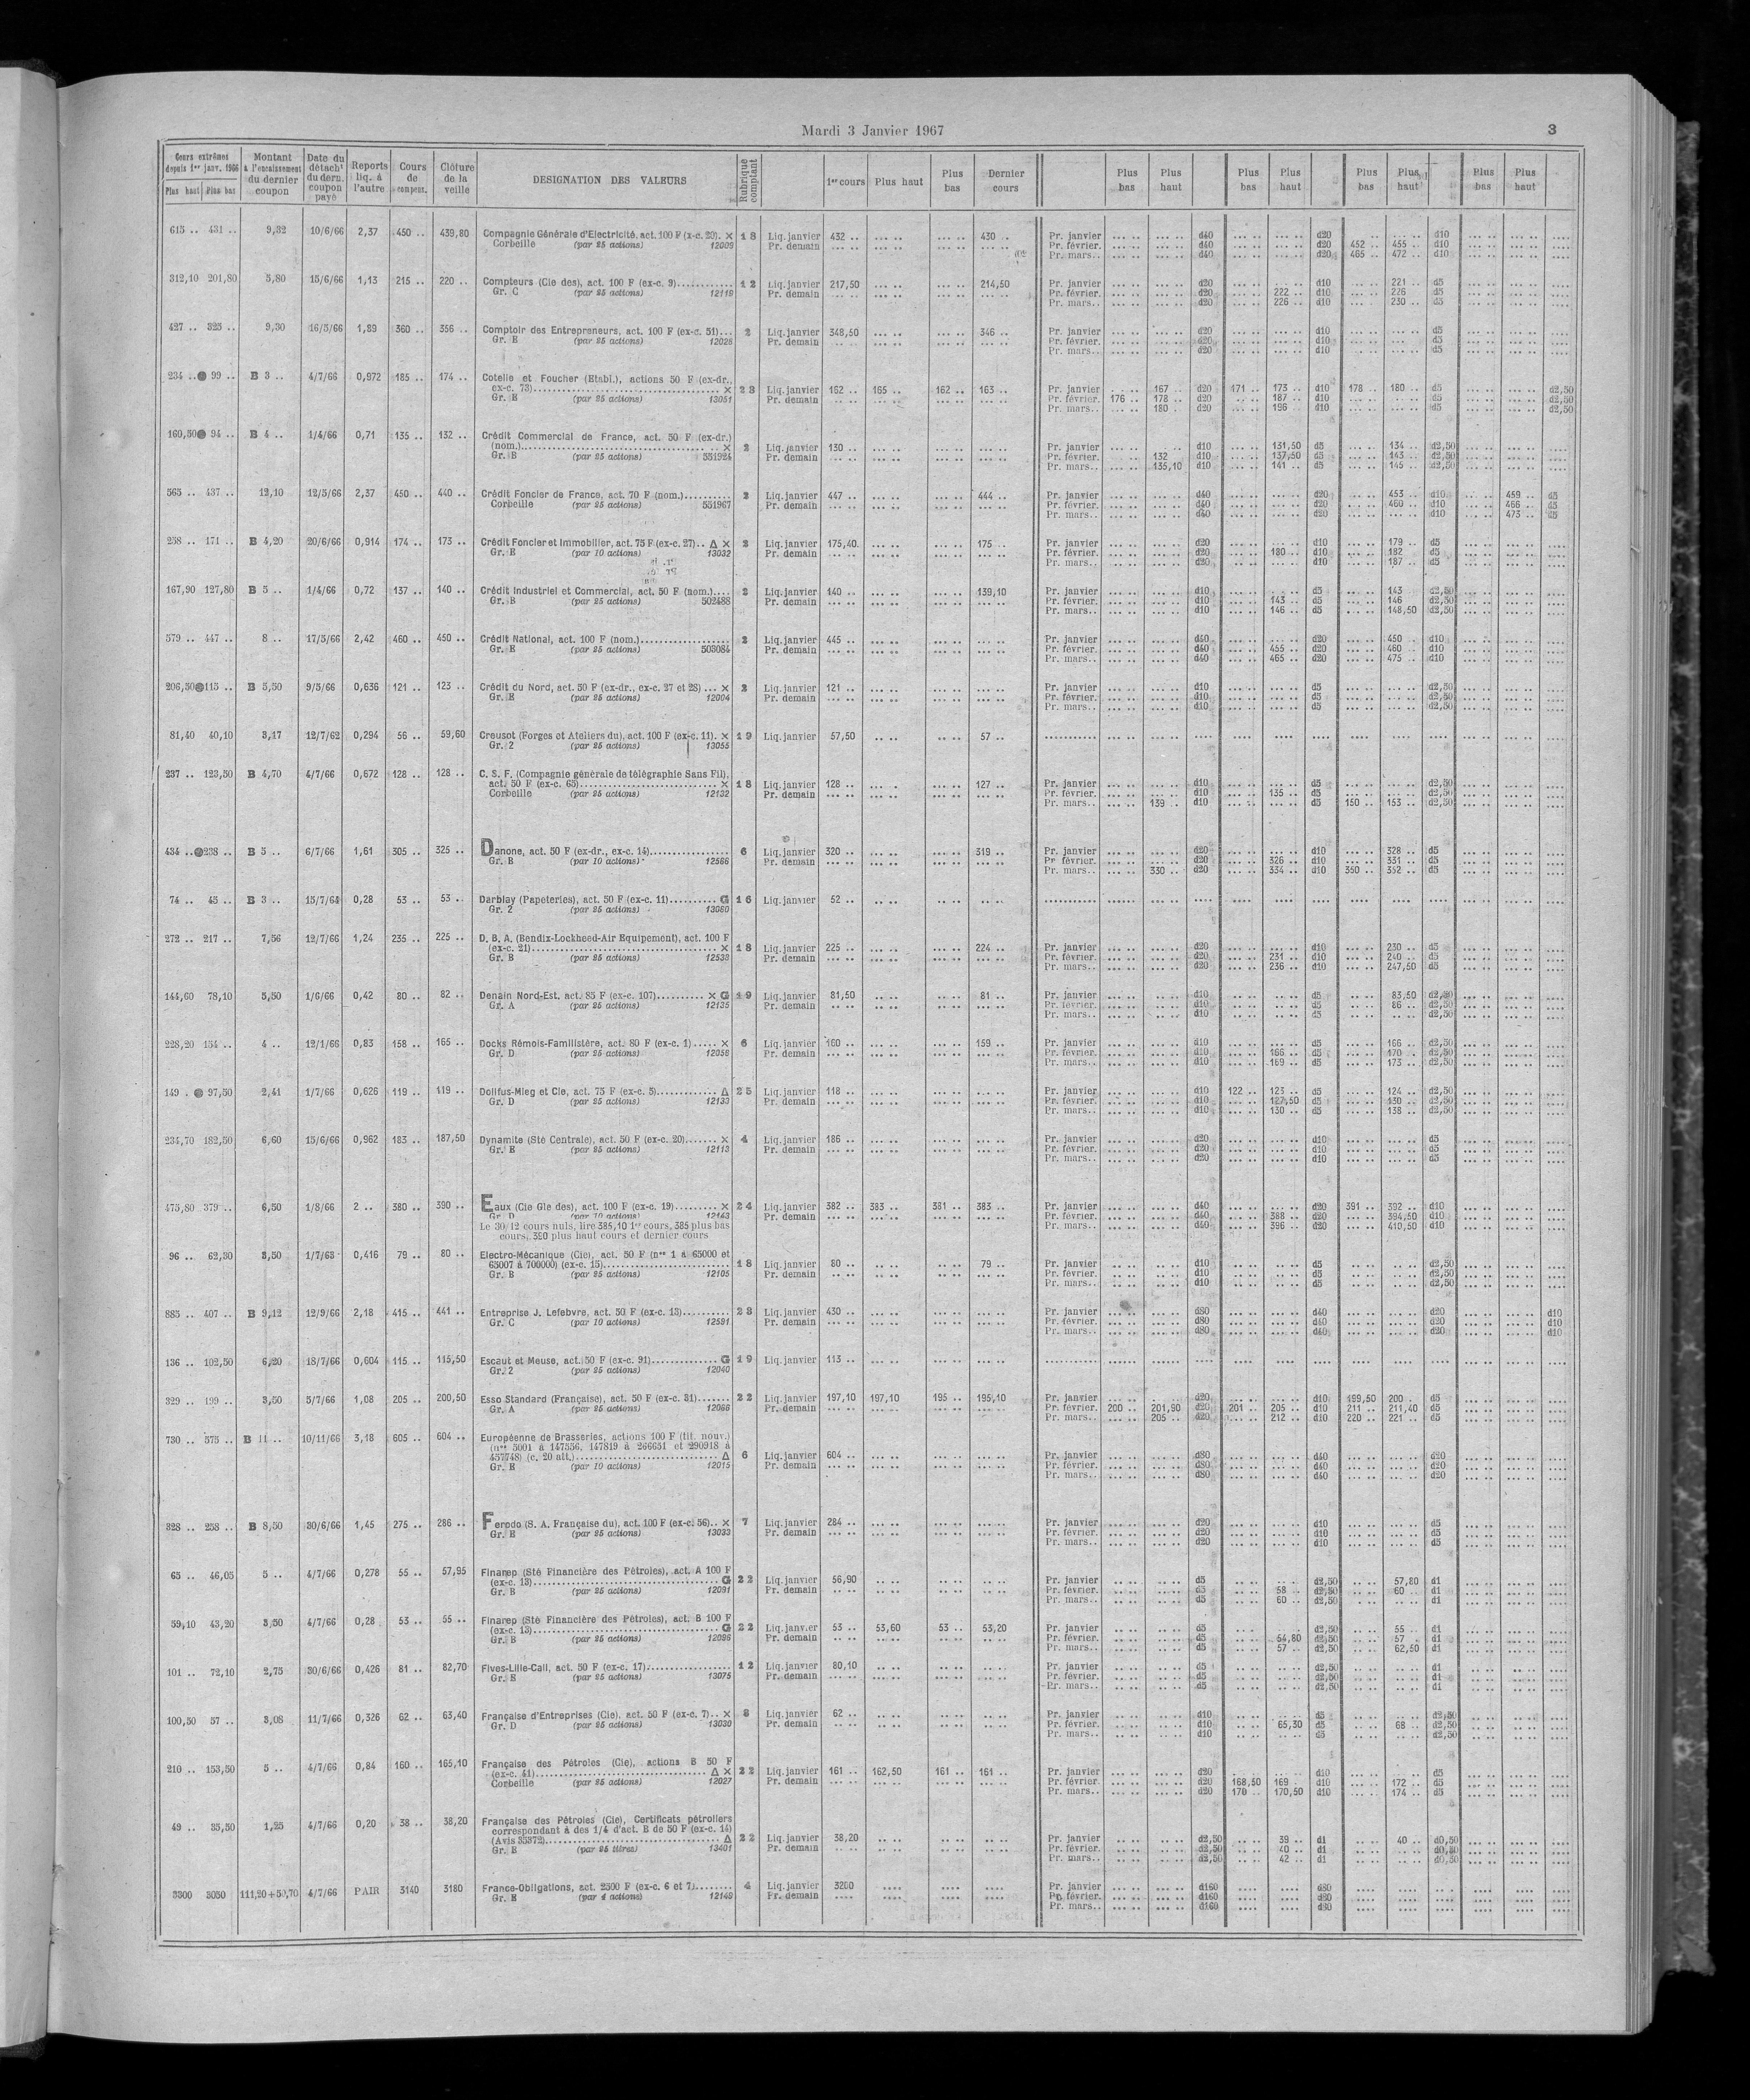 Mardi 3 Janvier 1967
3
Cours extrêmes depuis 1er janv. 1966 Plus haut Plus bas
Montant à l'encaissement du dernier coupon
Date du détacht du dern. coupon payé
Reports liq. à l'autre
Cours de compens.
Clôture de la veille
DESIGNATION DES VALEURS
Rubrique comptant
1er cours Plus haut Plus bas Dernier cours
Plus bas Plus haut Plus bas Plus haut Plus bas Plus haut Plus bas Plus haut
615 .. 431 .. 9,32 10/6/66 2,37 450 .. 439,80 Compagnie Générale d'Electricité, act. 100 F (x-c. 20). × 18 Liq. janvier 432 .. 430 .. Pr. janvier d40 d20 d10
Corbeille (par 25 actions) 12009 Pr. demain Pr. février. d40 d20 452 .. 455 .. d10
Pr. mars.. d40 d20 465 .. 472 .. d10
312,10 201,80 5,80 15/6/66 1,13 215 .. 220 .. Compteurs (Cie des), act. 100 F (ex-c. 9) 12 Liq. janvier 217,50 214,50 Pr. janvier d20 d10 221 .. d5
Gr. C (par 25 actions) 12119 Pr. demain Pr. février. d20 222 .. d10 226 d5
Pr. mars.. d20 226 .. d10 230 .. d5
427 .. 325 .. 9,30 16/5/66 1,89 360 .. 356 .. Comptoir des Entrepreneurs, act. 100 F (ex-c. 51)... 2 Liq. janvier 348,50 346 .. Pr. janvier d20 d10 d5
Gr. E (par 25 actions) 12028 Pr. demain Pr. février. d20 d10 d5
Pr. mars.. d20 d10 d5
234 .. 99 .. B 3 .. 4/7/66 0,972 185 .. 174 .. Cotelle et Foucher (Etabl.), actions 50 F (ex-dr.,
ex-c. 73) × 23 Liq. janvier 162 .. 165 .. 162 .. 163 .. Pr. janvier 167 .. d20 171 .. 173 .. d10 178 .. 180 .. d5 d2,50
Gr. B (par 25 actions) 13051 Pr. demain Pr. février. 176 .. 178 .. d20 187 .. d10 d5 d2,50
Pr. mars.. 180 . d20 196 d10 d5 d2,50
160,50 94 .. B 4 .. 1/4/66 0,71 135 .. 132 .. Crédit Commercial de France, act. 50 F (ex-dr.)
(nom.) × 2 Liq. janvier 130 .. Pr. janvier d10 131,50 d5 134 .. d2,50
Gr. B (par 25 actions) 551924 Pr. demain Pr. février. 132 d10 137,50 d5 143 .. d2,50
Pr. mars.. 135,10 d10 141 .. d5 145 .. d2,50
565 .. 437 .. 12,10 12/5/66 2,37 450 .. 440 .. Crédit Foncier de France, act. 70 F (nom.) 2 Liq. janvier 447 .. 444 .. Pr. janvier d40 d20 453 .. d10 459 .. d5
Corbeille (par 25 actions) 551967 Pr. demain Pr. février. d40 d20 460 .. d10 466 .. d5
Pr. mars.. d40 d20 d10 473 .. d5
258 .. 171 .. B 4,20 20/6/66 0,914 174 .. 173 .. Crédit Foncier et Immobilier, act. 75 F (ex-c. 27).. Δ × 2 Liq. janvier 175,40. 175 .. Pr. janvier d20 d10 179 .. d5
Gr. E (par 10 actions) 13032 Pr. demain Pr. février. d20 180 .. d10 182 d5
Pr. mars.. d20 d10 187 .. d5
167,90 127,80 B 5 .. 1/4/66 0,72 137 .. 140 .. Crédit Industriel et Commercial, act. 50 F (nom.).... 2 Liq. janvier 140 .. 139,10 Pr. janvier d10 d5 143 .. d2,50
Gr. B (par 25 actions) 502488 Pr. demain Pr. février. d10 143 .. d5 146 d2,50
Pr. mars.. d10 146 .. d5 148,50 d2,50
579 .. 447 .. 8 .. 17/5/66 2,42 460 .. 450 .. Crédit National, act. 100 F (nom.) 2 Liq. janvier 445 .. Pr. janvier d40 d20 450 .. d10
Gr. E (par 25 actions) 503084 Pr. demain Pr. février. d40 455 .. d20 460 .. d10
Pr. mars.. d40 465 .. d20 475 .. d10
206,50 115 .. B 5,50 9/5/66 0,636 121 .. 123 .. Crédit du Nord, act. 50 F (ex-dr., ex-c. 27 et 28) ... × 2 Liq. janvier 121 .. Pr. janvier d10 d5 d2,50
Gr. E (par 25 actions) 12004 Pr. demain Pr. février. d10 d5 d2,50
Pr. mars.. d10 d5 d2,50
81,40 40,10 3,17 12/7/62 0,294 56 .. 59,60 Creusot (Forges et Ateliers du), act. 100 F (ex-c. 11). × 19 Liq. janvier 57,50 57 ..
Gr. 2 (par 25 actions) 13055
237 .. 123,50 B 4,70 4/7/66 0,672 128 .. 128 .. C. S. F. (Compagnie générale de télégraphie Sans Fil),
act. 50 F (ex-c. 65) × 18 Liq. janvier 128 .. 127 .. Pr. janvier d10 d5 d2,50
Corbeille (par 25 actions) 12132 Pr. demain Pr. février. d10 135 .. d5 d2,50
Pr. mars.. 139 .. d10 d5 150 .. 153 .. d2,50
434 .. 238 .. B 5 .. 6/7/66 1,61 305 .. 325 .. Danone, act. 50 F (ex-dr., ex-c. 14) 6 Liq. janvier 320 .. 319 .. Pr. janvier d20 d10 328 .. d5
Gr. B (par 10 actions) 12566 Pr. demain Pr. février. d20 326 .. d10 331 .. d5
Pr. mars.. 330 .. d20 334 .. d10 350 .. 352 .. d5
74 .. 45 .. B 3 .. 15/7/64 0,28 53 .. 53 .. Darblay (Papeteries), act. 50 F (ex-c. 11) G 16 Liq. janvier 52 ..
Gr. 2 (par 25 actions) 13060
272 .. 217 .. 7,56 12/7/66 1,24 235 .. 225 .. D. B. A. (Bendix-Lockheed-Air Equipement), act. 100 F
(ex-c. 21) × 18 Liq. janvier 225 .. 224 .. Pr. janvier d20 d10 230 .. d5
Gr. B (par 25 actions) 12538 Pr. demain Pr. février. d20 231 .. d10 240 .. d5
Pr. mars.. d20 236 .. d10 247,50 d5
144,60 78,10 5,50 1/6/66 0,42 80 .. 82 .. Denain Nord-Est, act. 85 F (ex-c. 107) × G 19 Liq. janvier 81,50 81 .. Pr. janvier d10 d5 83,50 d2,50
Gr. A (par 25 actions) 12135 Pr. demain Pr. février. d10 d5 86 .. d2,50
Pr. mars.. d10 d5 d2,50
228,20 154 .. 4 .. 12/1/66 0,83 158 .. 165 .. Docks Rémois-Familistère, act. 80 F (ex-c. 1) × 6 Liq. janvier 160 .. 159 .. Pr. janvier d10 d5 166 .. d2,50
Gr. D (par 25 actions) 12058 Pr. demain Pr. février. d10 166 .. d5 170 .. d2,50
Pr. mars.. d10 169 .. d5 173 .. d2,50
149 . 97,50 2,41 1/7/66 0,626 119 .. 119 .. Dollfus-Mieg et Cie, act. 75 F (ex-c. 5) Δ 25 Liq. janvier 118 .. Pr. janvier d10 122 .. 123 .. d5 124 .. d2,50
Gr. D (par 25 actions) 12133 Pr. demain Pr. février. d10 127,50 d5 130 .. d2,50
Pr. mars.. d10 130 .. d5 138 .. d2,50
234,70 182,50 6,60 15/6/66 0,962 183 .. 187,50 Dynamite (Sté Centrale), act. 50 F (ex-c. 20) × 4 Liq. janvier 186 .. Pr. janvier d20 d10 d5
Gr. E (par 25 actions) 12113 Pr. demain Pr. février. d20 d10 d5
Pr. mars.. d20 d10 d5
475,80 379 .. 6,50 1/8/66 2 .. 380 .. 390 .. Eaux (Cie Gle des), act. 100 F (ex-c. 19) × 24 Liq. janvier 382 .. 383 .. 381 .. 383 .. Pr. janvier d40 d20 391 .. 392 .. d10
Gr. D (par 10 actions) 12143 Pr. demain Pr. février. d40 388 .. d20 394,50 d10
Le 30/12 cours nuls, lire 385,10 1er cours, 385 plus bas Pr. mars.. d40 396 .. d20 410,50 d10
cours, 390 plus haut cours et dernier cours
96 .. 62,30 3,50 1/7/63 0,416 79 .. 80 .. Electro-Mécanique (Cie), act. 50 F (nos 1 à 65000 et
65007 à 700000) (ex-c. 15) 18 Liq. janvier 80 .. 79 .. Pr. janvier d10 d5 d2,50
Gr. B (par 25 actions) 12105 Pr. demain Pr. février. d10 d5 d2,50
Pr. mars.. d10 d5 d2,50
885 .. 407 .. B 9,12 12/9/66 2,18 415 .. 441 .. Entreprise J. Lefebvre, act. 50 F (ex-c. 13) 23 Liq. janvier 430 .. Pr. janvier d80 d40 d20 d10
Gr. C (par 10 actions) 12591 Pr. demain Pr. février. d80 d40 d20 d10
Pr. mars.. d80 d40 d20 d10
136 .. 102,50 6,20 18/7/66 0,604 115 .. 115,50 Escaut et Meuse, act. 50 F (ex-c. 91) G 19 Liq. janvier 113 ..
Gr. 2 (par 25 actions) 12040
329 .. 199 .. 3,50 5/7/66 1,08 205 .. 200,50 Esso Standard (Française), act. 50 F (ex-c. 31) 22 Liq. janvier 197,10 197,10 195 .. 195,10 Pr. janvier d20 d10 199,50 200 .. d5
Gr. A (par 25 actions) 12068 Pr. demain Pr. février. 200 .. 201,90 d20 201 .. 205 .. d10 211 .. 211,40 d5
Pr. mars.. 205 .. d20 212 .. d10 220 .. 221 .. d5
730 .. 575 .. B 11 .. 10/11/66 3,18 605 .. 604 .. Européenne de Brasseries, actions 100 F (tit. nouv.)
(nos 5001 à 147556, 147819 à 266651 et 290918 à
457748) (c. 20 att.) Δ 6 Liq. janvier 604 .. Pr. janvier d80 d40 d20
Gr. E (par 10 actions) 12015 Pr. demain Pr. février. d80 d40 d20
Pr. mars.. d80 d40 d20
328 .. 258 .. B 8,50 30/6/66 1,45 275 .. 286 .. Ferodo (S. A. Française du), act. 100 F (ex-c. 56).. × 7 Liq. janvier 284 .. Pr. janvier d20 d10 d5
Gr. E (par 25 actions) 13033 Pr. demain Pr. février. d20 d10 d5
Pr. mars.. d20 d10 d5
65 .. 46,05 5 .. 4/7/66 0,278 55 .. 57,95 Finarep (Sté Financière des Pétroles), act. A 100 F
(ex-c. 13) G 22 Liq. janvier 56,90 Pr. janvier d5 d2,50 57,80 d1
Gr. B (par 25 actions) 12091 Pr. demain Pr. février. d5 58 .. d2,50 60 .. d1
Pr. mars.. d5 60 .. d2,50 d1
59,10 43,20 3,50 4/7/66 0,28 53 .. 55 .. Finarep (Sté Financière des Pétroles), act. B 100 F
(ex-c. 13) G 22 Liq. janvier 53 .. 53,60 53 .. 53,20 Pr. janvier d5 d2,50 55 .. d1
Gr. B (par 25 actions) 12096 Pr. demain Pr. février. d5 54,80 d2,50 57 . d1
Pr. mars.. d5 57 .. d2,50 62,50 d1
101 .. 72,10 2,75 30/6/66 0,426 81 .. 82,70 Fives-Lille-Cail, act. 50 F (ex-c. 17) 12 Liq. janvier 80,10 Pr. janvier d5 d2,50 d1
Gr. E (par 25 actions) 13075 Pr. demain Pr. février. d5 d2,50 d1
Pr. mars.. d5 d2,50 d1
100,50 57 .. 3,08 11/7/66 0,326 62 .. 63,40 Française d'Entreprises (Cie), act. 50 F (ex-c. 7).. × 8 Liq. janvier 62 .. Pr. janvier d10 d5 d2,50
Gr. D (par 25 actions) 13030 Pr. demain Pr. février. d10 65,30 d5 68 .. d2,50
Pr. mars.. d10 d5 d2,50
210 .. 153,50 5 .. 4/7/66 0,84 160 .. 165,10 Française des Pétroles (Cie), actions B 50 F
(ex-c. 41) Δ × 22 Liq. janvier 161 .. 162,50 161 .. 161 .. Pr. janvier d20 d10 d5
Corbeille (par 25 actions) 12027 Pr. demain Pr. février. d20 168,50 169 .. d10 172 .. d5
Pr. mars.. d20 170 .. 170,50 d10 174 .. d5
49 .. 35,50 1,25 4/7/66 0,20 38 .. 38,20 Française des Pétroles (Cie), Certificats pétroliers
correspondant à des 1/4 d'act. B de 50 F (ex-c. 14)
(Avis 35372) Δ 22 Liq. janvier 38,20 Pr. janvier d2,50 39 .. d1 40 .. d0,50
Gr. E (par 25 titres) 13401 Pr. demain Pr. février. d2,50 40 .. d1 d0,50
Pr. mars.. d2,50 42 .. d1 d0,50
3300 3050 111,20+50,70 4/7/66 PAIR 3140 3180 France-Obligations, act. 2300 F (ex-c. 6 et 7) 4 Liq. janvier 3200 Pr. janvier d160 d80
Gr. E (par 4 actions) 12149 Pr. demain Pr. février. d160 d80
Pr. mars.. d160 d80